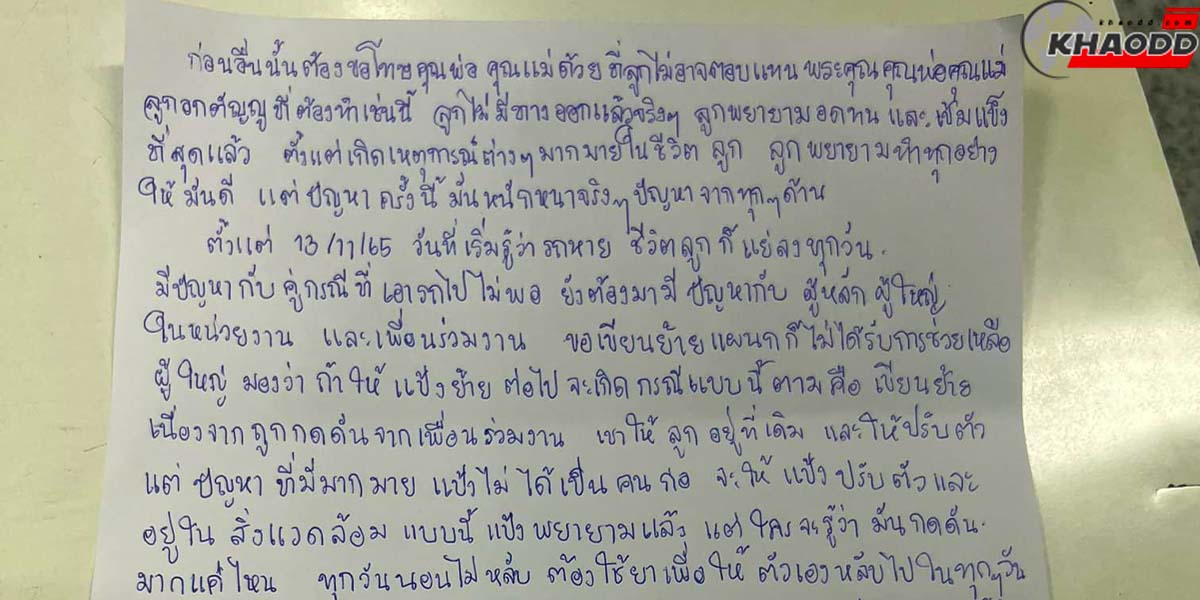 khaodd.com
KHAODD
ก่อนอื่นนั้นต้องขอโทษคุณพ่อ คุณแม่ด้วย ที่ลูกไม่อาจตอบแทน พระคุณคุณพ่อคุณแม่
ลูกอกตัญญู ที่ต้องทำเช่นนี้ ลูกไม่มีทางออกแล้วจริงๆ ลูกพยายามอดทน และเข้มแข็ง
ที่สุดแล้ว ตั้งแต่เกิดเหตุการณ์ต่างๆมากมายในชีวิต ลูก ลูกพยายามทำทุกอย่าง
ให้มันดี แต่ปัญหาครั้งนี้มันหนักหนาจริงๆ ปัญหาจากทุกๆด้าน
ตั้งแต่ 13/11/65 วันที่เริ่มรู้ว่ารถหาย ชีวิตลูกก็แย่ลงทุกวัน.
มีปัญหากับคู่กรณีที่เอารถไปไม่พอ ยังต้องมามีปัญหากับ ผู้หลักผู้ใหญ่
ในหน่วยงาน และเพื่อนร่วมงาน ขอเขียนย้ายแผนกก็ไม่ได้รับการช่วยเหลือ
ผู้ใหญ่มองว่า ถ้าให้แป้งย้าย ต่อไปจะเกิดกรณีแบบนี้ตามคือ เขียนย้าย
เนื่องจากถูกกดดันจากเพื่อนร่วมงาน เขาให้ลูกอยู่ที่เดิม และให้ปรับตัว
แต่ปัญหาที่มีมากมาย แป้งไม่ได้เป็นคนก่อ จะให้แป้งปรับตัวและ
อยู่ในสิ่งแวดล้อมแบบนี้ แป้งพยายามแล้ว แต่ใครจะรู้ว่า มันกดดัน.
มากแค่ไหน ทุกวันนอนไม่หลับ ต้องใช้ยาเพื่อให้ตัวเองหลับไปในทุกๆวัน